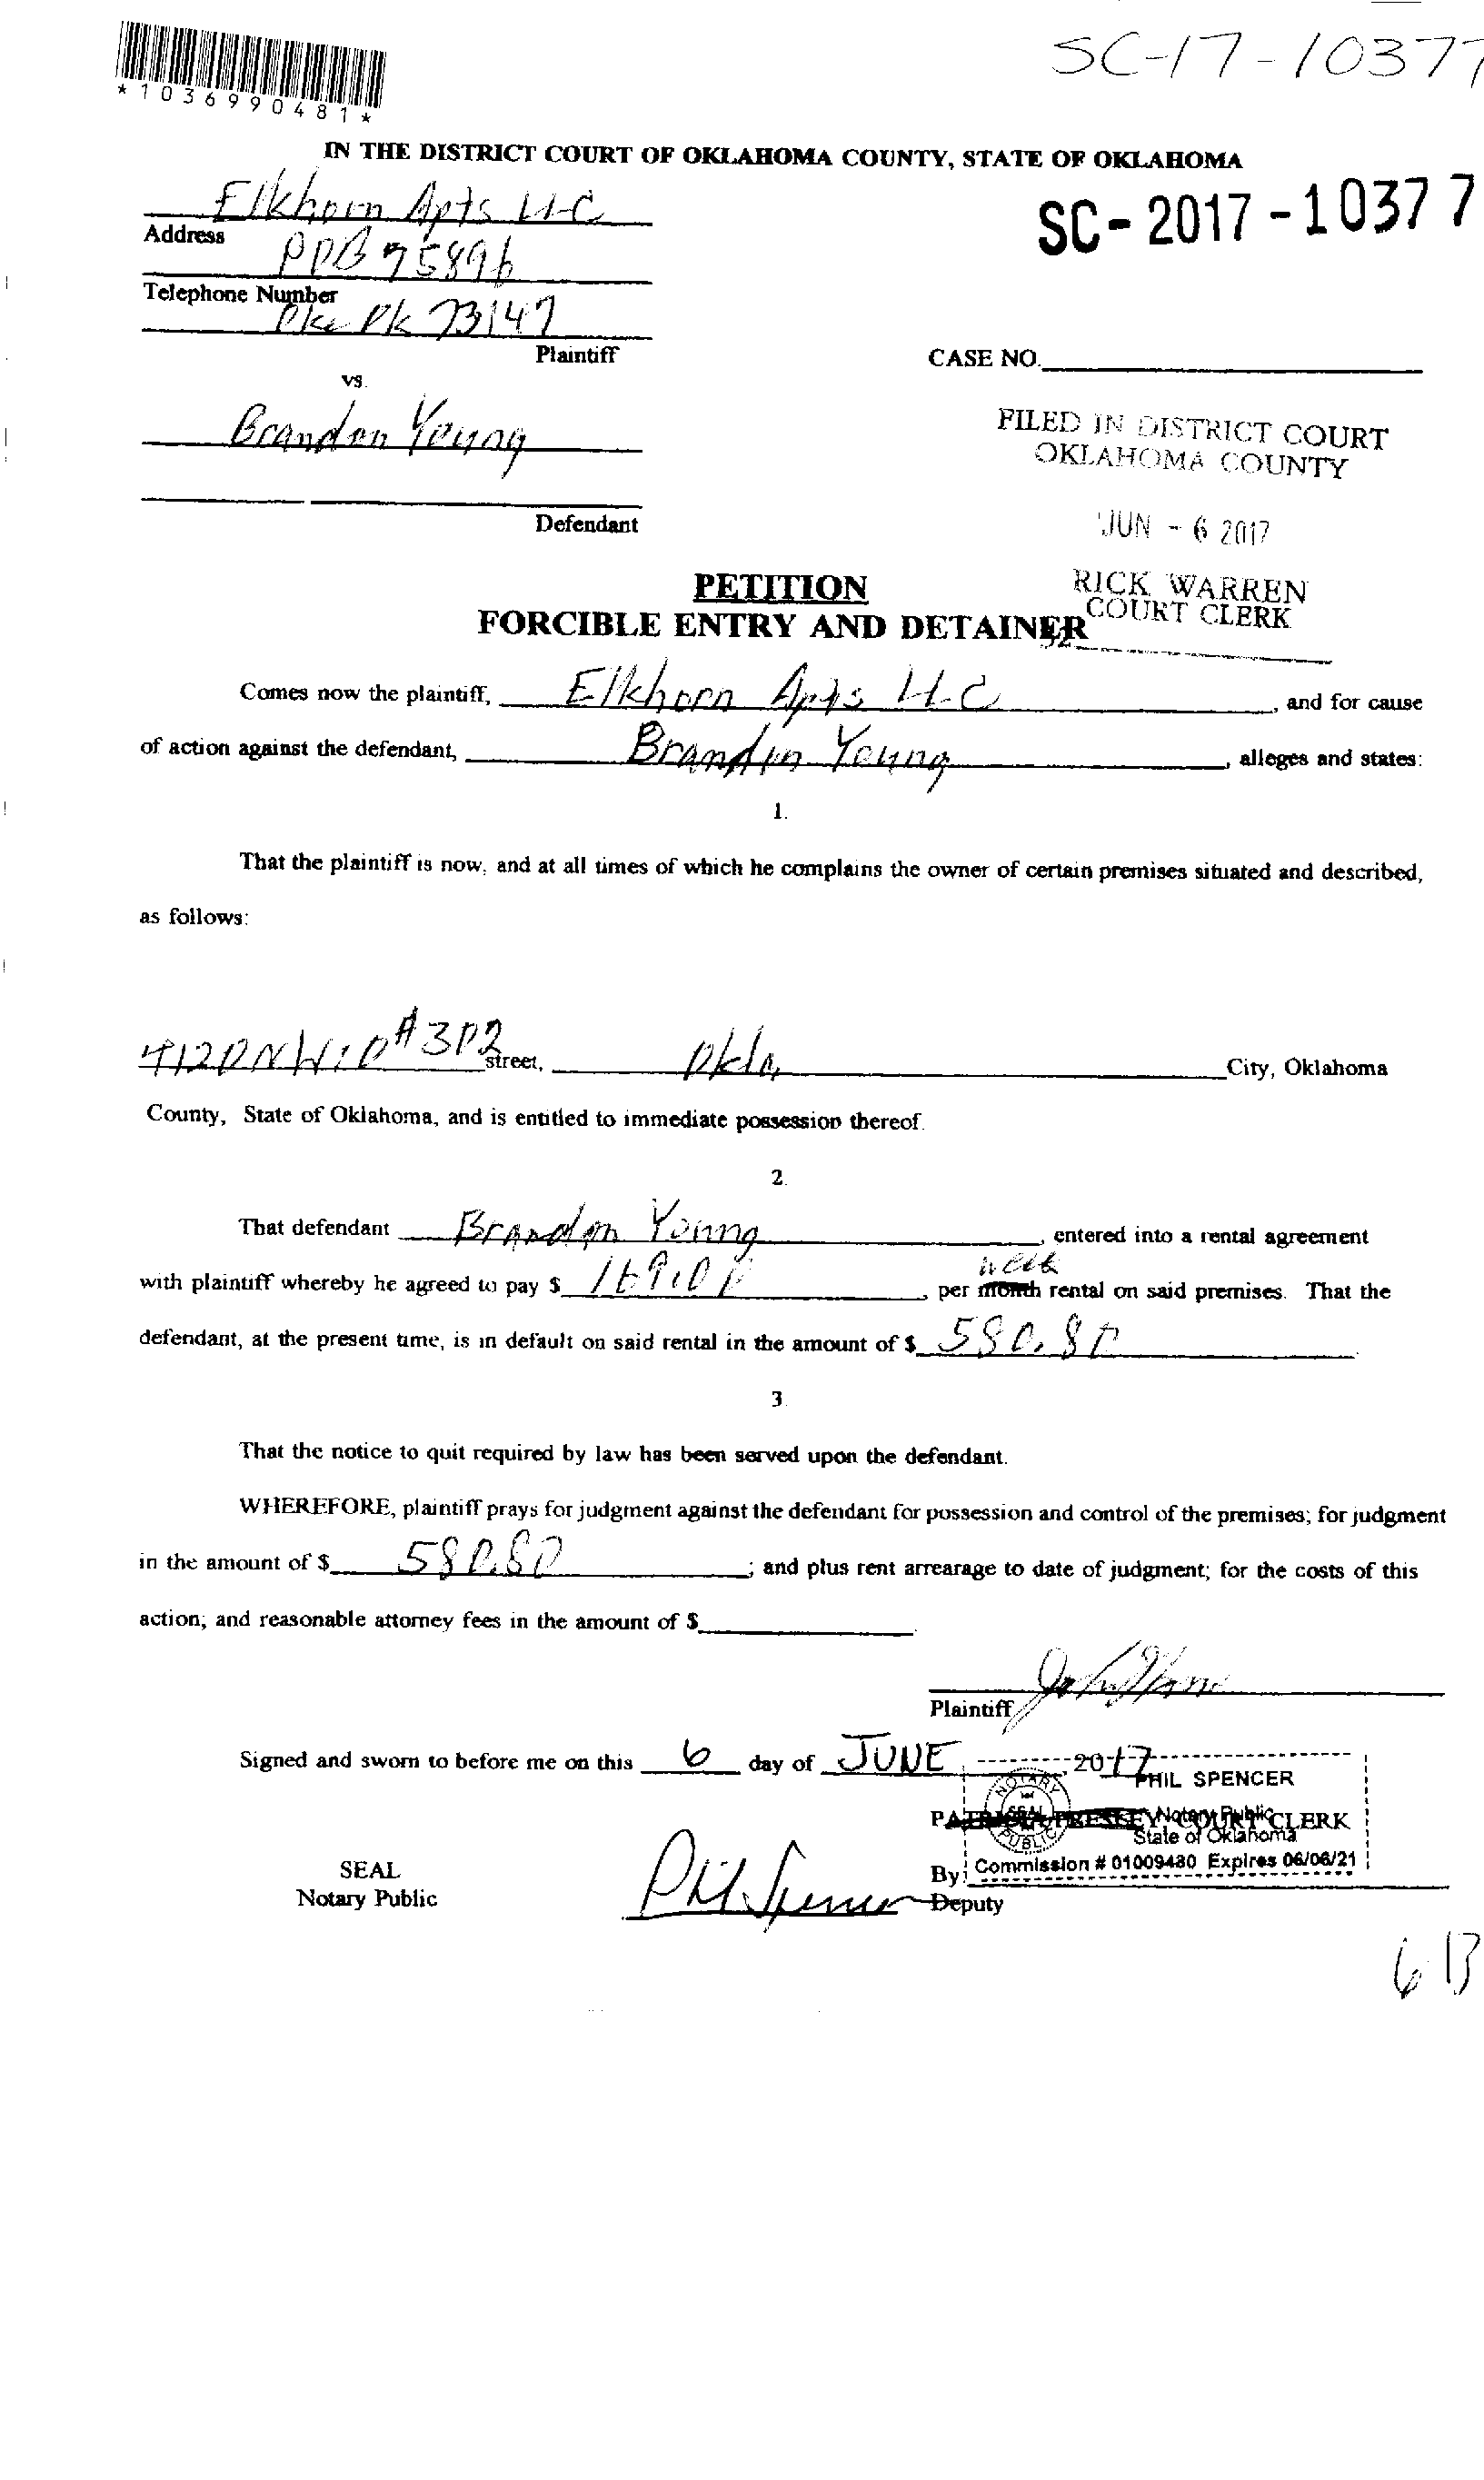 SC-17-10377
*1036990481*
IN THE DISTRICT COURT OF OKLAHOMA COUNTY, STATE OF OKLAHOMA
Elkhorn Apts LLC
SC-2017-10377
Address
POB 75896
Telephone Number
Okc Ok 73147
Plaintiff
CASE NO.
vs.
Brandon Young
FILED IN DISTRICT COURT
OKLAHOMA COUNTY
Defendant
JUN - 6 2017
PETITION
RICK WARREN
FORCIBLE ENTRY AND DETAINER
COURT CLERK
32
Comes now the plaintiff, Elkhorn Apts LLC, and for cause
of action against the defendant, Brandon Young, alleges and states:
1.
That the plaintiff is now, and at all times of which he complains the owner of certain premises situated and described,
as follows:
4120 NW 10 #302 street, Okla City, Oklahoma
County, State of Oklahoma, and is entitled to immediate possession thereof.
2.
That defendant Brandon Young, entered into a rental agreement
week
with plaintiff whereby he agreed to pay $ 169.00, per month rental on said premises. That the
defendant, at the present time, is in default on said rental in the amount of $ 580.80
3.
That the notice to quit required by law has been served upon the defendant.
WHEREFORE, plaintiff prays for judgment against the defendant for possession and control of the premises; for judgment
in the amount of $ 580.80; and plus rent arrearage to date of judgment; for the costs of this
action; and reasonable attorney fees in the amount of $
Plaintiff
Signed and sworn to before me on this 6 day of JUNE, 2017
PHIL SPENCER
NOTARY SEAL PUBLIC
Notary Public
PATRICIA PRESLEY, COURT CLERK
State of Oklahoma
SEAL
By
Commission # 01009480 Expires 06/06/21
Notary Public
Phil Spencer
Deputy
613